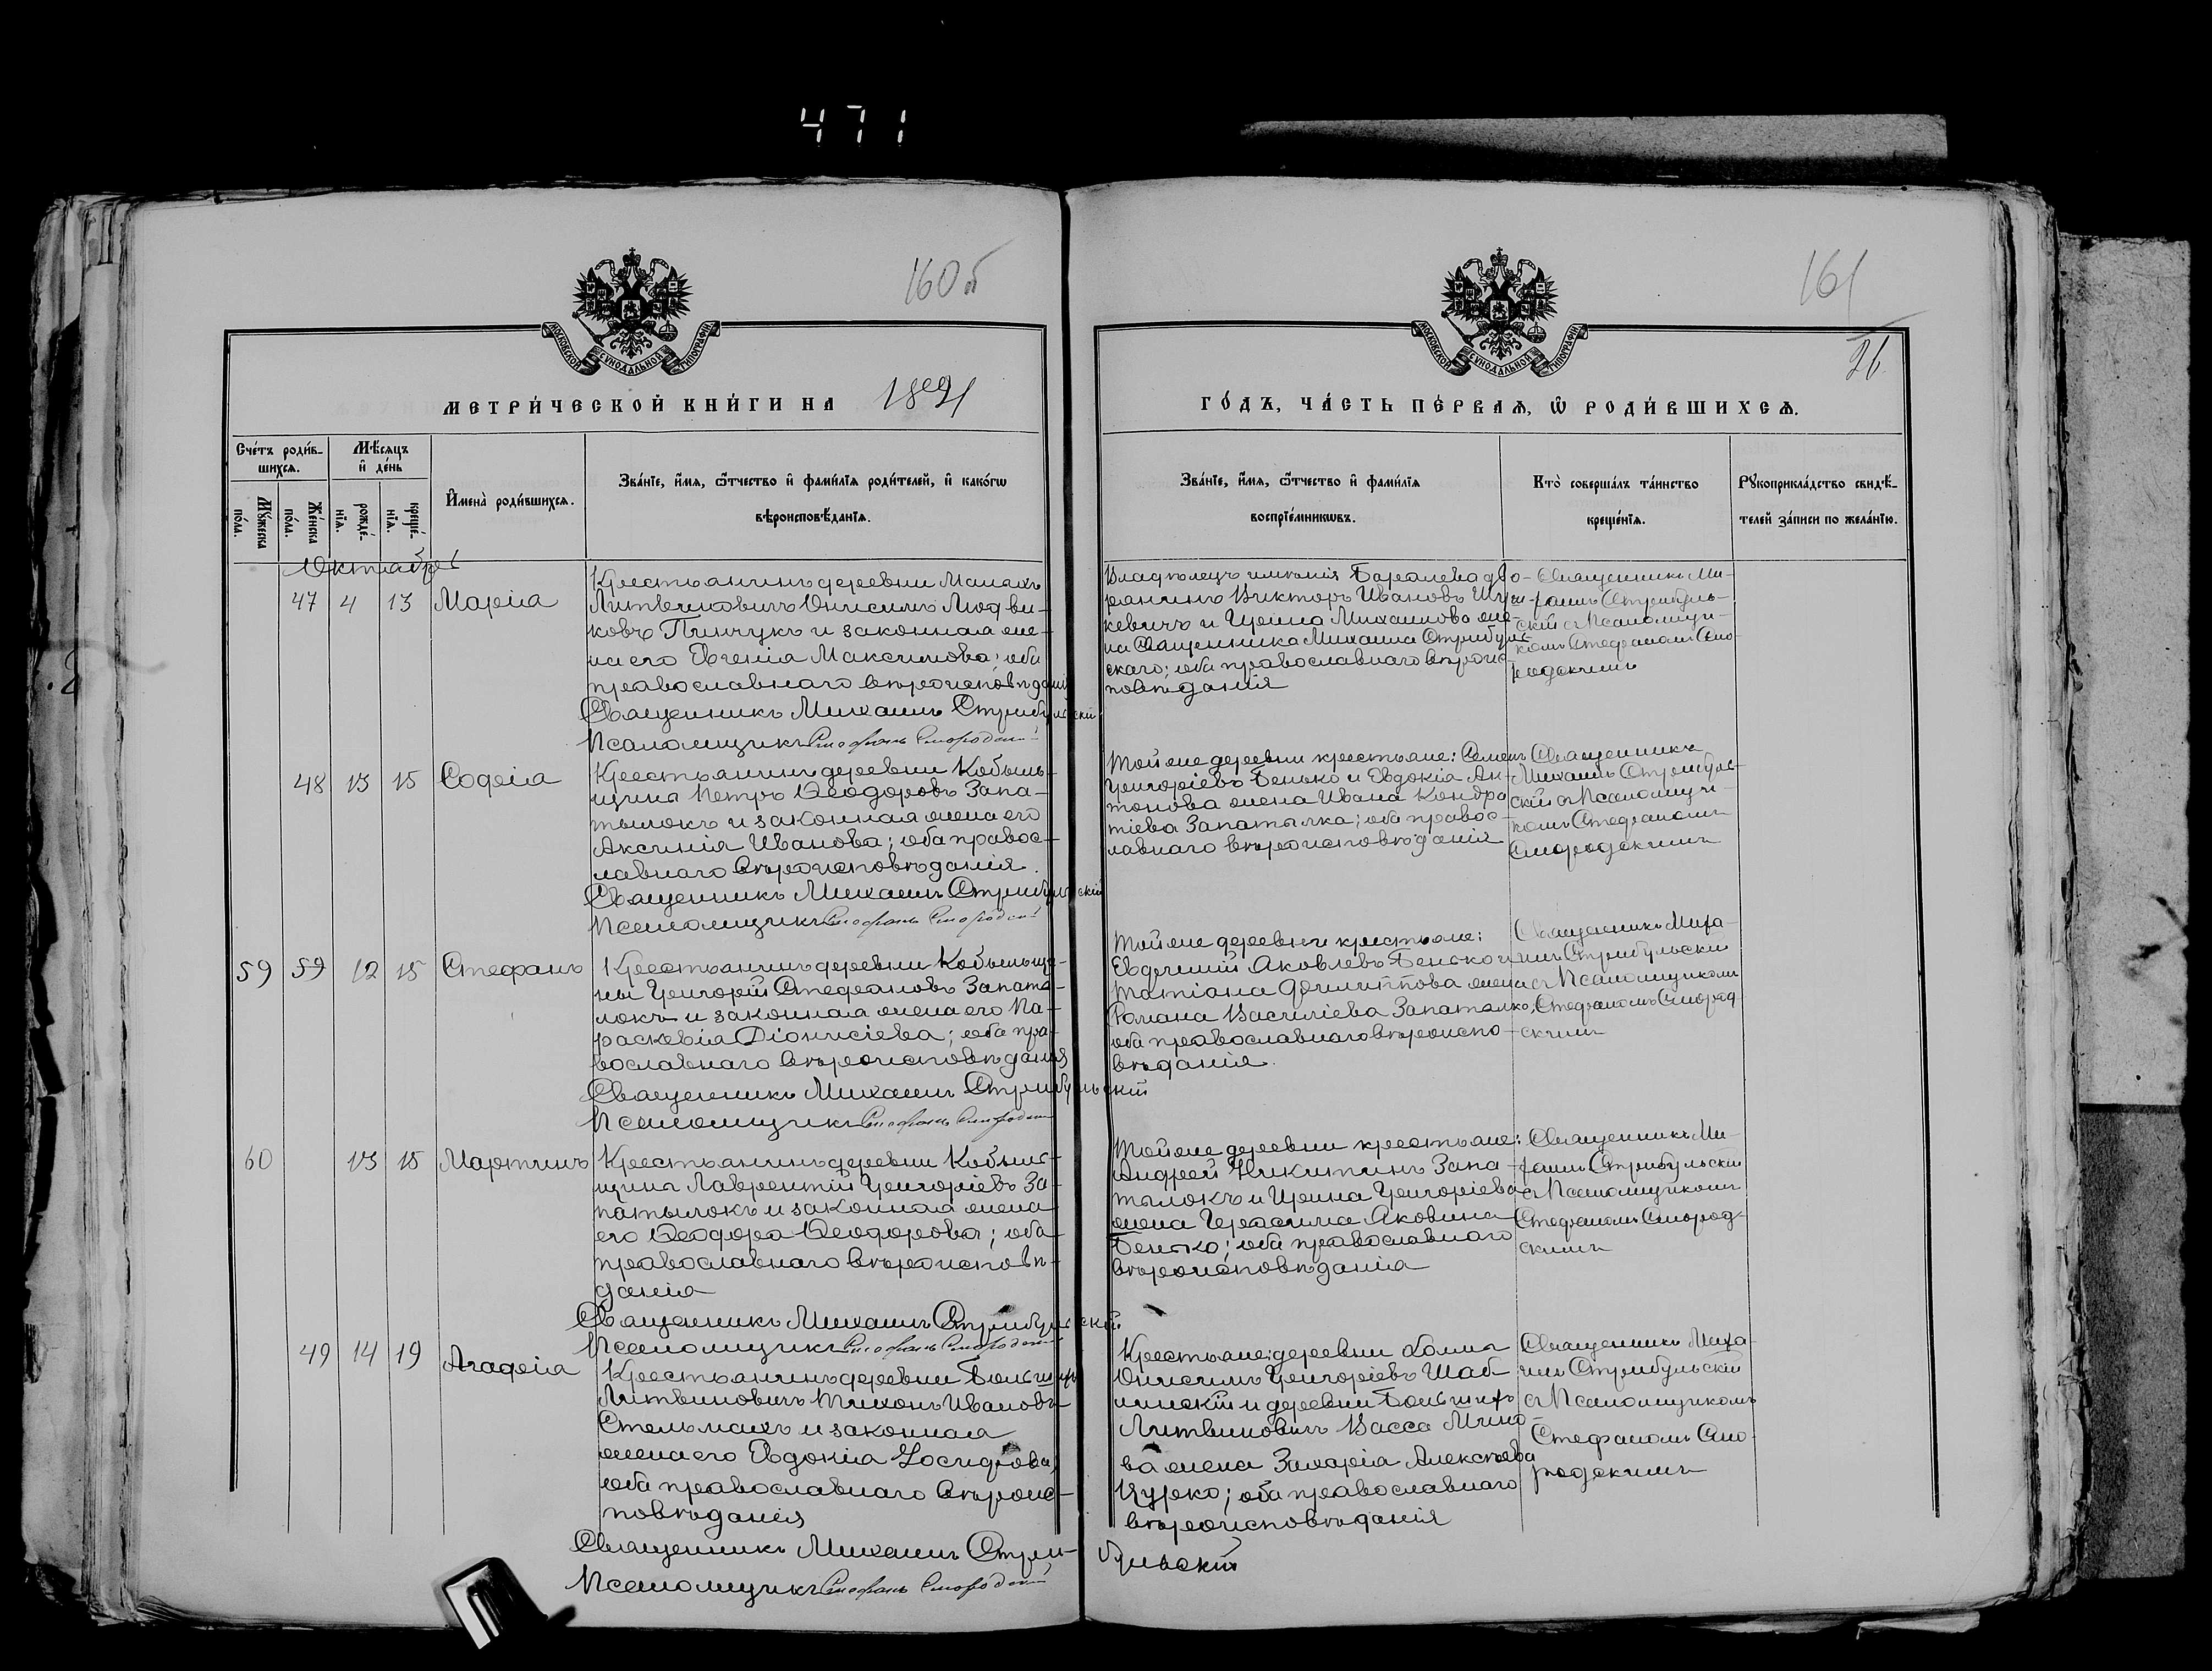 471
160 б
161
26
МОСКОВСКОЙ СѴНОДАЛЬНОЙ ТИПОГРАФІИ
МОСКОВСКОЙ СѴНОДАЛЬНОЙ ТИПОГРАФІИ
МЕТРИ́ЧЕСКОЙ КНИ́ГИ НА 1891
ГО́ДЪ, ЧА́СТЬ ПЕ́РВАѦ, Ѿ РОДИ́ВШИХСѦ.
Сче́тъ роди́в-
шихсѧ.
Мꙋ́жеска по́ла.
Же́нска по́ла.
Мѣ́сѧцъ и де́нь
рожде́-нїѧ.
креще́-нїѧ.
И҆мена̀ роди́вшихсѧ.
Зва́нїе, и҆́мѧ, ѻ҆́тчество и҆ фами́лїѧ роди́телей, и҆ како́гѡ
вѣроисповѣ́данїѧ.
Зва́нїе, и҆́мѧ, ѻ҆́тчество и҆ фами́лїѧ
воспрїе́мникѡвъ.
Кто̀ соверша́лъ та́инство
креще́нїѧ.
Рꙋкоприкла́дство свидѣ́-
телей за́писи по жела́нїю.
Октябрь
47 4 13 Марія
Крестьянинъ деревни Малыхъ
Литвиновичъ Онисимъ Людви-
ковъ Пинчукъ и законная же-
на его Евгенія Максимова; оба
православнаго вѣроисповѣданія
Священникъ Михаилъ Стрибульскій
Псаломщикъ Стефанъ Смородскій
Владѣлецъ имѣнія Баралева дво-
рянинъ Викторъ Ивановъ
кевичъ и Ирина Михаилова же-
на Священника Михаила Стрибуль-
скаго; оба православнаго вѣроис-
повѣданія
Священникъ Ми-
хаилъ Стрибуль-
скій съ Псаломщи-
комъ Стефаномъ Смо-
родскимъ
48 13 15 Софія
Крестьянинъ деревни Кобыль-
щины Петръ Ѳеодоровъ Запа-
тылокъ и законная жена его
Аксинія Иванова; оба правос-
лавнаго вѣроисповѣданія.
Священникъ Михаилъ Стрибульскій
Псаломщикъ Стефанъ Смородскій
Той же деревни крестьяне: Семенъ
Григоріевъ Бенько и Евдокія Ан-
тонова жена Ивана Кондра
тіева Запатылка; оба правос-
лавнаго вѣроисповѣданія
Священникъ
Михаилъ Стрибуль-
скій съ Псаломщи-
комъ Стефаномъ
Смородскимъ
59 59 12 15 Стефанъ
Крестьянинъ деревни Кобыльщи-
ны Григорій Стефановъ Запаты-
локъ и законная жена его Па-
раскевія Діонисіева; оба пра-
вославнаго вѣроисповѣданія
Священникъ Михаилъ Стрибульскій
Псаломщикъ Стефанъ Смородскій
Той же деревни крестьяне:
Евфимій Яковлевъ Бенько и
Татіана Филиппова жена
Романа Василіева Запатылко;
оба православнаго вѣроиспо-
вѣданія.
Священникъ Миха-
илъ Стрибульскій
съ Псаломщикомъ
Стефаномъ Смород-
скимъ
60 13 15 Мартинъ
Крестьянинъ деревни Кобыль-
щины Лаврентій Григоріевъ За-
патылокъ и законная жена
его Ѳеодора Ѳеодорова; оба
православнаго вѣроисповѣ-
данія
Священникъ Михаилъ Стрибульскій
Псаломщикъ Стефанъ Смородскій
Той же деревни крестьяне:
Андрей Никитинъ Запа-
тылокъ и Ирина Григоріева
жена Герасима Яковина
Бенько; оба православнаго
вѣроисповѣданія
Священникъ Ми-
хаилъ Стрибульскій
съ Псаломщикомъ
Стефаномъ Смород-
скимъ
49 14 19 Агафія
Крестьянинъ деревни Большихъ
Литвиновичъ Тихонъ Ивановъ
Стельмахъ и законная
жена его Евдокія Іосифова;
оба православнаго вѣроис-
повѣданія
Священникъ Михаилъ Стри-бульскій
Псаломщикъ Стефанъ Смородскій
Крестьяне: деревни Холмы
Онисимъ Григоріевъ Шаб-
линскій и деревни Большихъ
Литвиновичъ Васса Мино-
ва жена Захарія Алексѣева
Цурко; оба православнаго
вѣроисповѣданія
Священникъ Миха-
илъ Стрибульскій
съ Псаломщикомъ
Стефаномъ Смо-
родскимъ